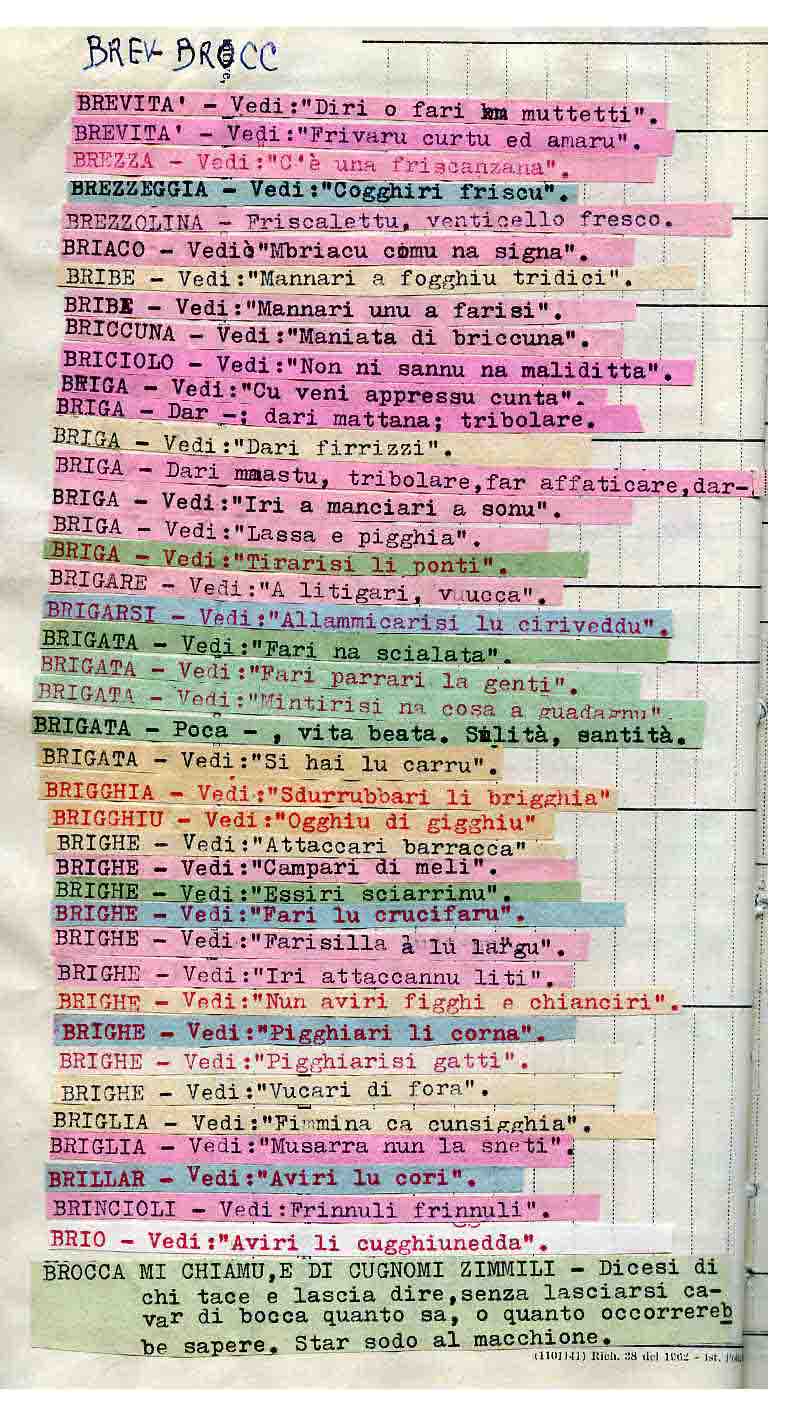 BREV- BROCC
BREVITA' - Vedi:"Diri o fari muttetti".
BREVITA' - Vedi:"Frivaru curtu ed amaru".
BREZZA - Vedi:"C'è una friscanzana".
BREZZEGGIA - Vedi:"Cogghiri friscu".
BREZZOLINA - Friscalettu, venticello fresco.
BRIACO - Vediò"Mbriacu comu na signa".
BRIBE - Vedi:"Mannari a fogghiu tridici".
BRIBE - Vedi:"Mannari unu a farisi".
BRICCUNA - Vedi:"Maniata di briccuna".
BRICIOLO - Vedi:"Non ni sannu na maliditta".
BRIGA - Vedi:"Cu veni appressu cunta".
BRIGA - Dar -; dari mattana; tribolare.
BRIGA - Vedi:"Dari firrizzi".
BRIGA - Dari mmastu, tribolare,far affaticare,dar-
BRIGA - Vedi:"Iri a manciari a sonu".
BRIGA - Vedi:"Lassa e pigghia".
BRIGA - Vedi:"Tirarisi li ponti".
BRIGARE - Vedi:"A litigari,
BRIGARSI - Vedi:"Allammicarisi lu ciriveddu".
BRIGATA - Vedi:"Fari na scialata".
BRIGATA - Vedi:"Fari parrari la genti".
BRIGATA - Vedi:"Mintirisi na cosa a guadagnu".
BRIGATA - Poca - , vita beata. Sulità, santità.
BRIGATA - Vedi:"Si hai lu carru".
BRIGGHIA - Vedi:"Sdurrubbari li brigghia"
BRIGGHIU - Vedi:"Ogghiu di gigghiu"
BRIGHE - Vedi:"Attaccari barracca"
BRIGHE - Vedi:"Campari di meli".
BRIGHE - Vedi:"Essiri sciarrinu".
BRIGHE - Vedi:"Fari lu crucifaru".
BRIGHE - Vedi:"Farisilla a lu largu".
BRIGHE - Vedi:"Iri attaccannu liti".
BRIGHE - Vedi:"Nun aviri figghi e chianciri".
BRIGHE - Vedi:"Pigghiari li corna".
BRIGHE - Vedi:"Pigghiarisi gatti".
BRIGHE - Vedi:"Vucari di fora".
BRIGLIA - Vedi:"Fimmina ca cunsigghia".
BRIGLIA - Vedi:"Musarra nun la sneti".
BRILLAR - Vedi:"Aviri lu cori".
BRINCIOLI - Vedi:Frinnuli frinnuli".
BRIO - Vedi:"Aviri li cugghiunedda".
BROCCA MI CHIAMU,E DI CUGNOMI ZIMMILI - Dicesi di
chi tace e lascia dire,senza lasciarsi ca-
var di bocca quanto sa, o quanto occorrereb
be sapere. Star sodo al macchione.
(1101141) Rich. 38 del 1962 - Ist.